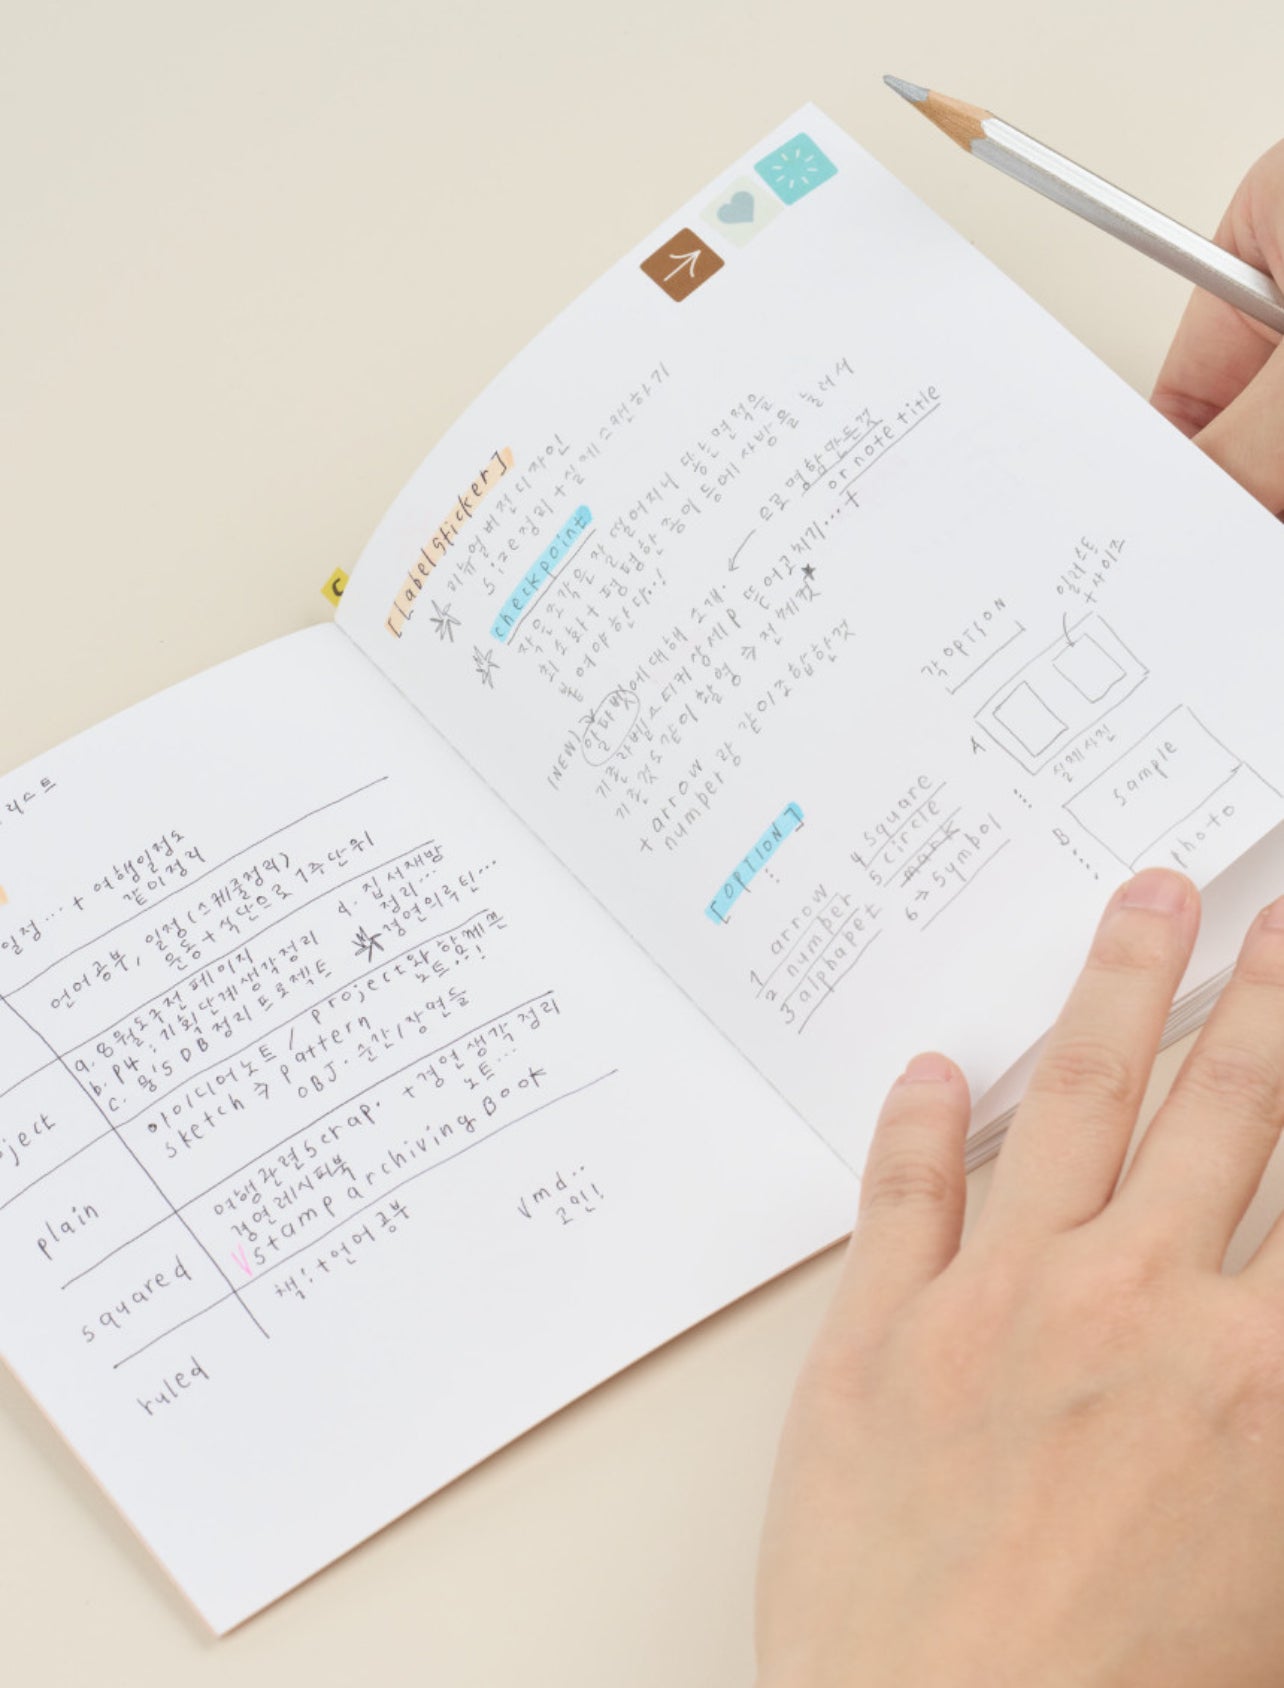 리스트
일정... + 여행일정도
같이정리
언어공부, 일정(스케줄정리)
운동+식단으로 1주단위
a. 8월도쿠전 페이지
b. P4: 기획단계생각정리
c. 몽's DB정리 프로젝트
d. 집 서재방
정리...
경연의룩틴...
oject
•아이디어노트 / project와 함께쓴
sketch ⇒ pattern 노트..!
OBJ. 순간/장면들
plain
여행관련scrap. + 경연생각정리
경연레시피북 노트...
V stamp archiving Book
squared
책:+언어공부
ruled
Vmd..
고민!
C
[label sticker]
리뉴얼버전디자인
size정리+실제스캔하기
checkpoint
작은조각은 잘 떨어지니 닿는면적을
최소화+평평한 종이 등에 사방을 눌러서
붙여야한다..!
(NEW) 알파벳에대해 소개. ← 으로 명함만든것
or note title
기존라벨스티커상세P 뜯어고치기...+
기존것도 같이촬영⇒전체컷★
+ arrow랑 같이조합한컷
number
[OPTION]
:
1 arrow
2 number
3 alphapet
4 square
5 circle
mark
6→symbol
각 OPTION
일러스트
+사이즈
A
실제사진
⋮
B
⋮
sample
photo